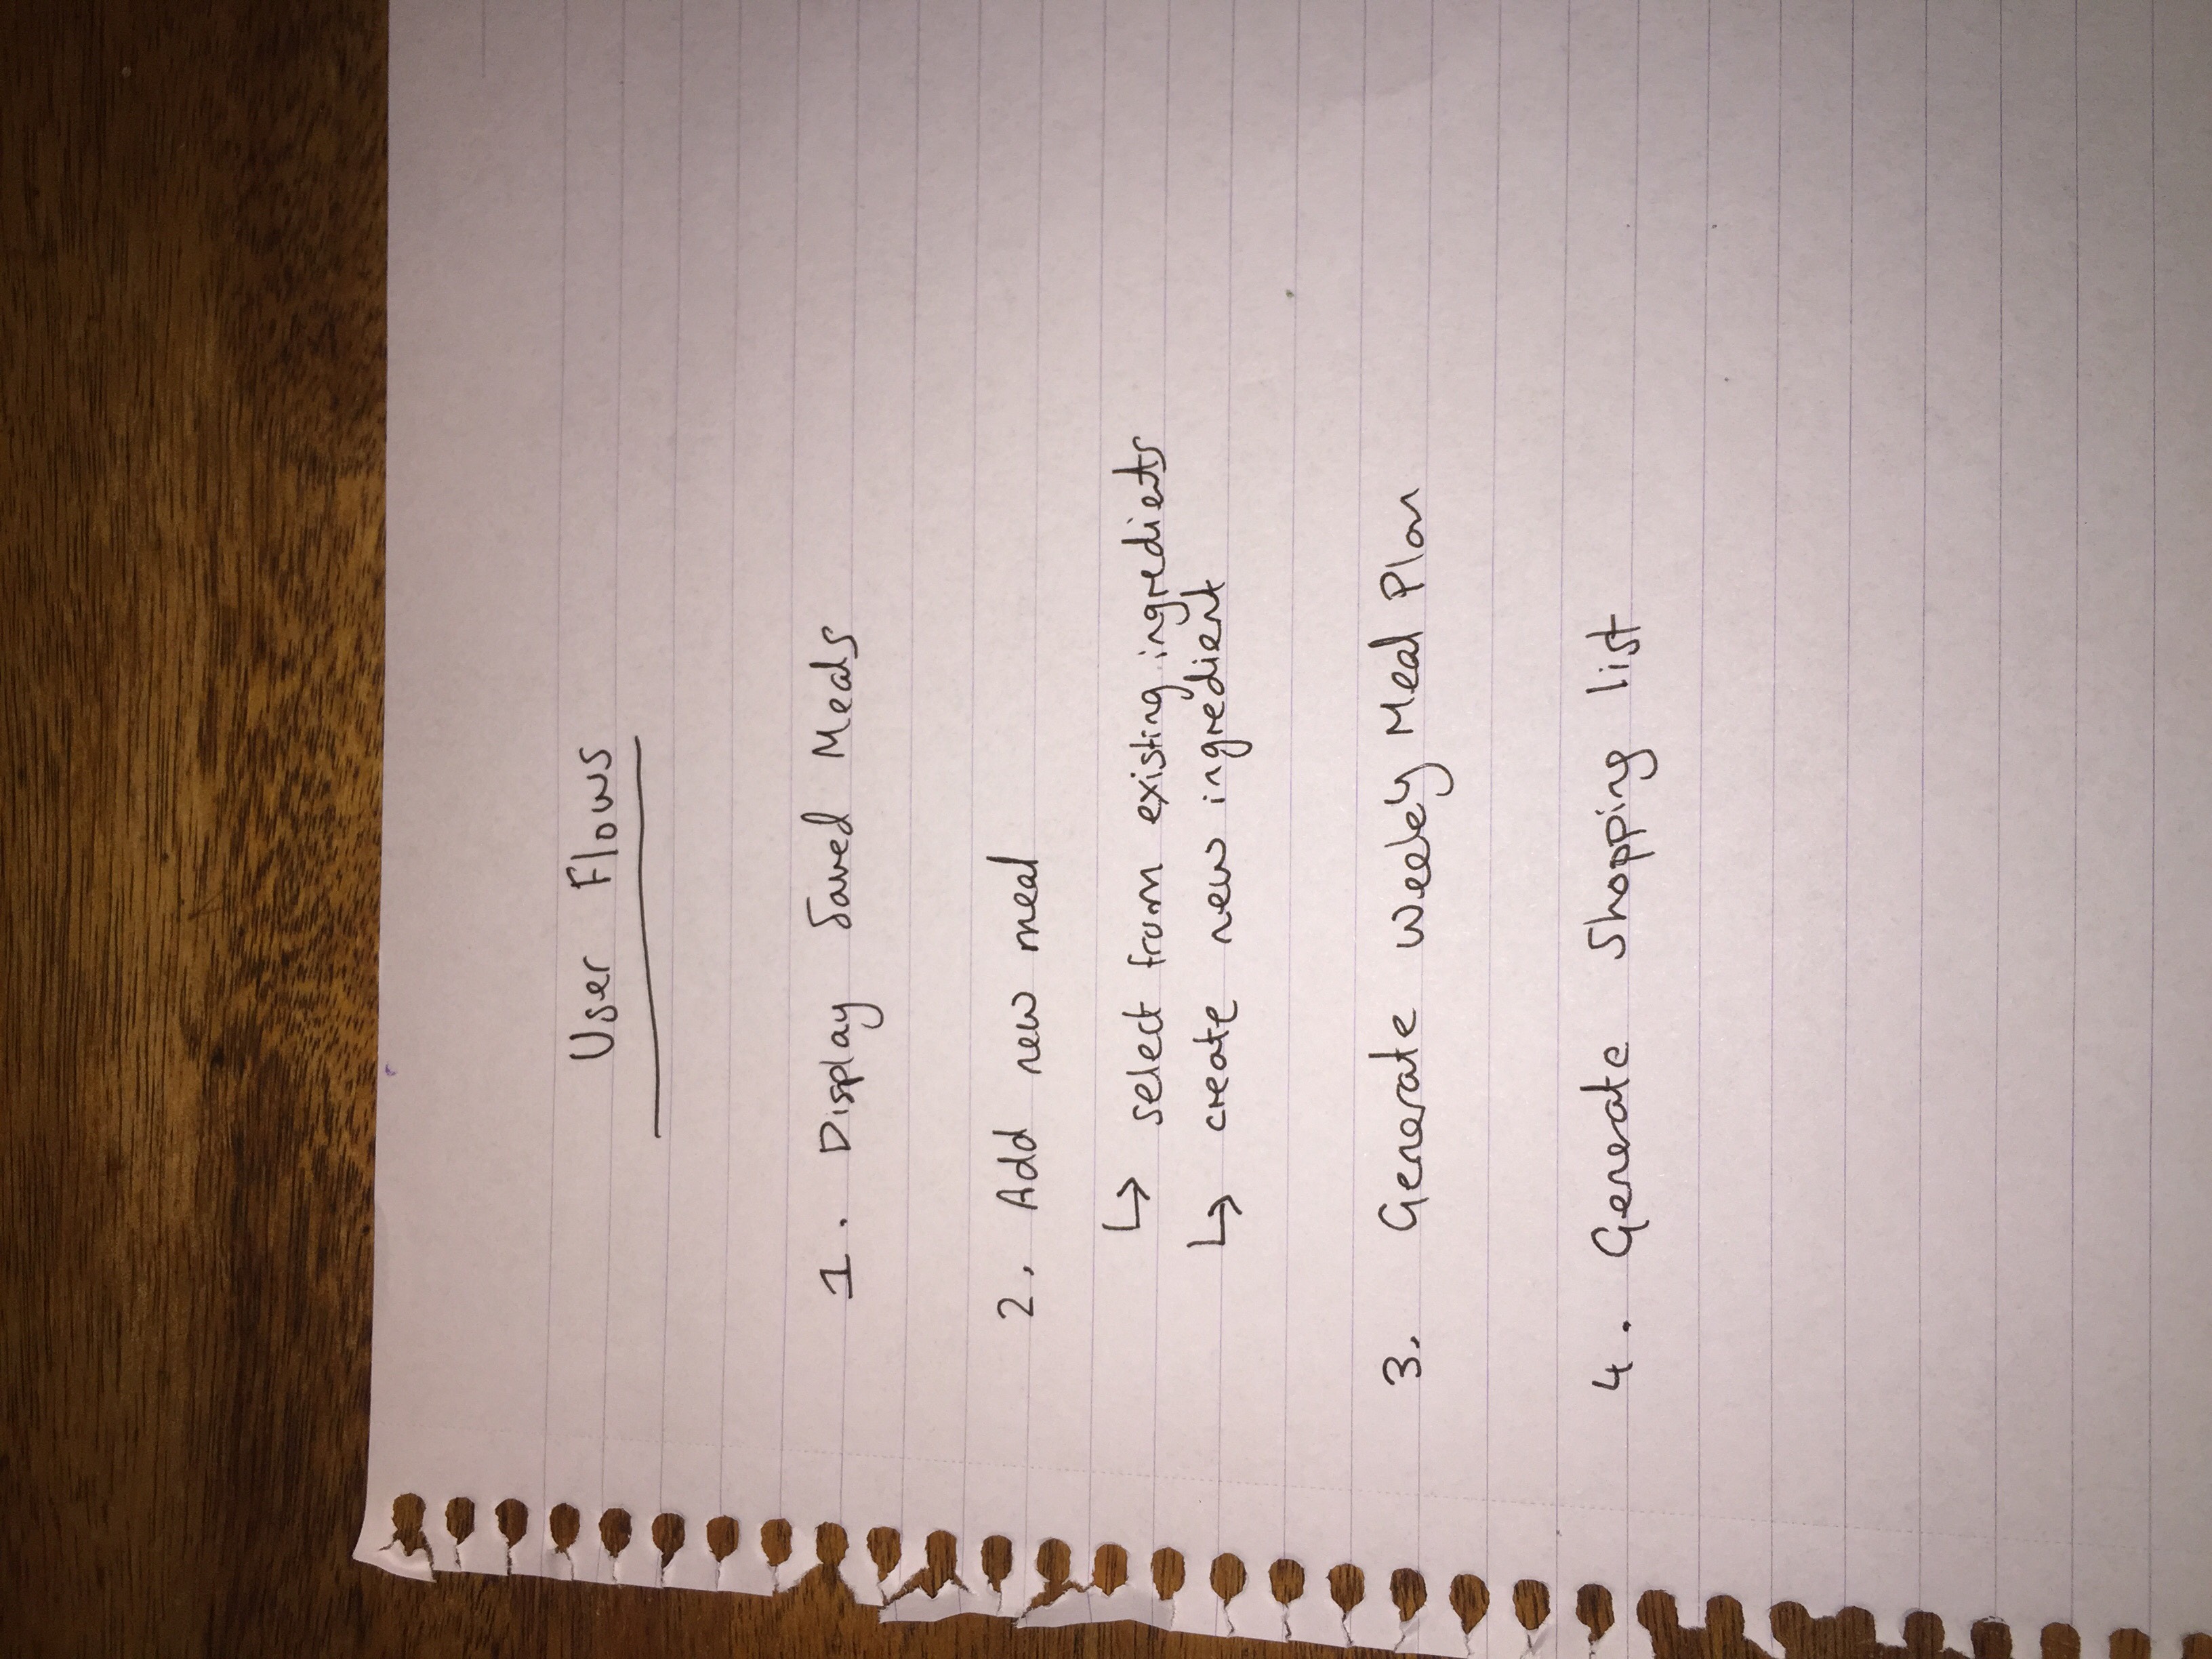 User Flows
1. Display Saved Meals
2. Add new meal
↳ select from existing ingredients
↳ create new ingredient
3. Generate Weekly Meal Plan
4. Generate Shopping list